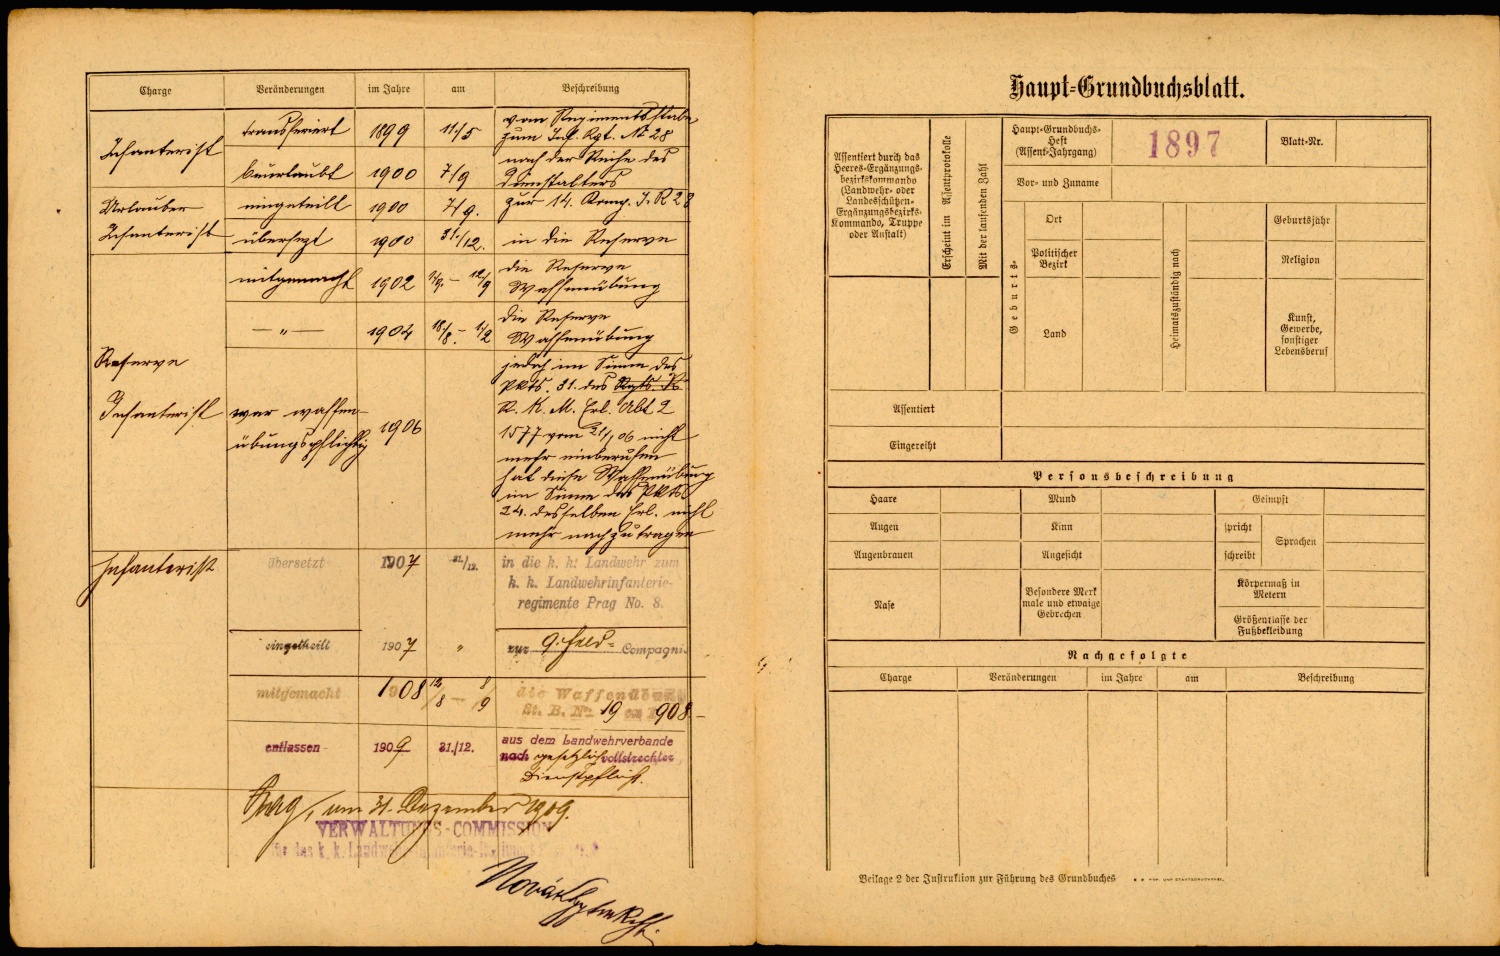 Charge Veränderungen im Jahre am Beschreibung
Infanterist transferiert 1899 11./5 vom Regimentsstabe
zum Inf. Rgt. № 28
beurlaubt 1900 7/9 nach der Reihe des
Dienstalters
Urlauber eingeteilt 1900 7/9. zur 14. Komp. I. R 28
Infanterist übersezt 1900 31./12. in die Reserve
mitgemacht 1902 die Reserve
Waffenübung
— „ — 1904 die Reserve
Waffenübung
Reserve
Infanterist war waffen-
übungspflichtig 1906
jedoch im Sinne des
Pkts. 31. des
R. K. M. Erl. Abt 2
1577 vom 21/1 06 nicht
mehr einberufen
hat diese Waffenübung
im Sinne des Pkts
24. desselben Erl. nicht
mehr nachzutragen
Infanterist übersetzt 1907 31./12. in die k. k. Landwehr zum
k. k. Landwehrinfanterie-
regimente Prag No. 8.
eingetheilt 1907 „ zur 9. Feld- Compagnie
mitgemacht 1908 12/8 — 8/9 die Waffenübung
St. B. No 19 908
entlassen 1909 31./12. aus dem Landwehrverbande
nach gesetzlich vollstreckter
Dienstpflicht.
Prag, am 31. Dezember 1909.
VERWALTUNGS-COMMISSION
für das k. k. Landwehr-Infanterie-
Haupt-Grundbuchsblatt.
Assentiert durch das
Heeres-Ergänzungs-
bezirkskommando
(Landwehr- oder
Landesschützen-
Ergänzungsbezirks-
Kommando, Truppe
oder Anstalt)
Erscheint im Assentprotokolle
Mit der laufenden Zahl
Haupt-Grundbuchs-
Heft
(Assent-Jahrgang)
1897
Blatt-Nr.
Vor- und Zuname
Geburts-
Ort
Politischer
Bezirk
Land
Heimatszuständig nach
Geburtsjahr
Religion
Kunst,
Gewerbe,
sonstiger
Lebensberuf
Assentiert
Eingereiht
Personsbeschreibung
Haare Mund Geimpft
Augen Kinn spricht Sprachen
Augenbrauen Angesicht schreibt
Nase
Besondere Merk
male und etwaige
Gebrechen
Körpermaß in
Metern
Größenklasse der
Fußbekleidung
Nachgefolgte
Charge Veränderungen im Jahre am Beschreibung
Beilage 2 der Instruktion zur Führung des Grundbuches